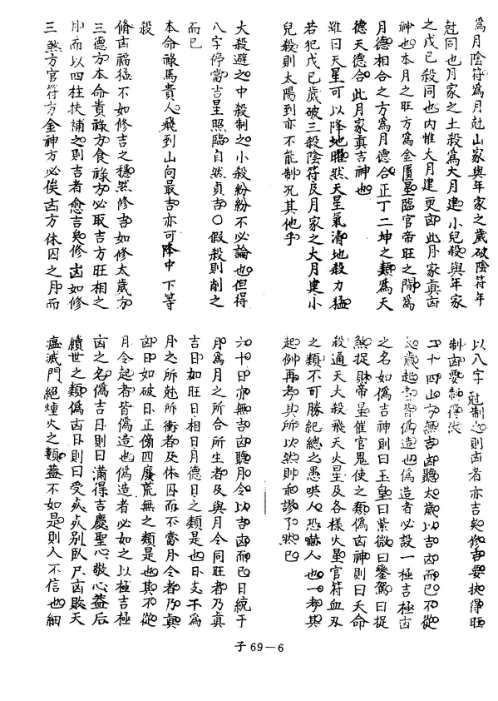 為月陰符為月尅山家與年家之歲破陰符年
尅同也月家之土殺為大月建小兒殺與年家
之戊己殺同也内惟大月建更凶此月家真凶
神也本月之旺方為金匱星臨官帝旺之間為
月德相合之方為月德合正丁二坤之類為天
德天德合此月家真吉神也
雖曰天星可以降地曜然天星氣清地殺力猛
若犯戊己歲破三殺陰符及月家之大月建小
兒殺則太陽到亦不能制况其他乎
大殺避之中殺制之小殺紛紛不必論也但得
八字停當吉星照臨自然貞吉〇假殺則削之
而已
本命祿馬貴人飛到山向最吉亦可降中下等
殺
脩凶福猛不如修吉之穩然修吉如修太歲方
三德方本命貴祿方食祿方必取吉方旺相之
月而以四柱扶補之則吉者愈吉矣修凶如修
三煞方官符方金神方必俟凶方休囚之月而
以八字尅制之則凶者亦吉矣修吉要扶得旺
制凶要制得伏
二十四山方無吉凶聽太歲以吉凶而已不從
太歲起者皆偽造也偽造者必設一極吉極凶
之名如偽吉神則曰玉皇曰紫微曰鑾駕曰捉
煞捉財帝星催官鬼使之類偽凶神則曰天命
殺通天大殺飛天火星及各樣火星官符血刃
之類不可勝紀總之愚哄人恐嚇人也一考其
起例再考其所以然則亦謬了然已
六十日亦無吉凶聽月令以吉凶而已日統于
月為月之所合所生者及與月令同旺者乃真
吉日如旺日相日月德日之類是也日支不為
月之所尅所衝者及休囚而不當月令者乃真
凶日如破日正傷四廢荒無之類是也其不從
月令起者皆偽造也偽造者必如之以極吉極
凶之名偽吉日則曰滿得吉慶聖心敬心益后
續世之類偽凶日則曰受死死别臥尸凶敗天
瘟滅門絕煙火之類蓋不如是則人不信也細
子 69－6